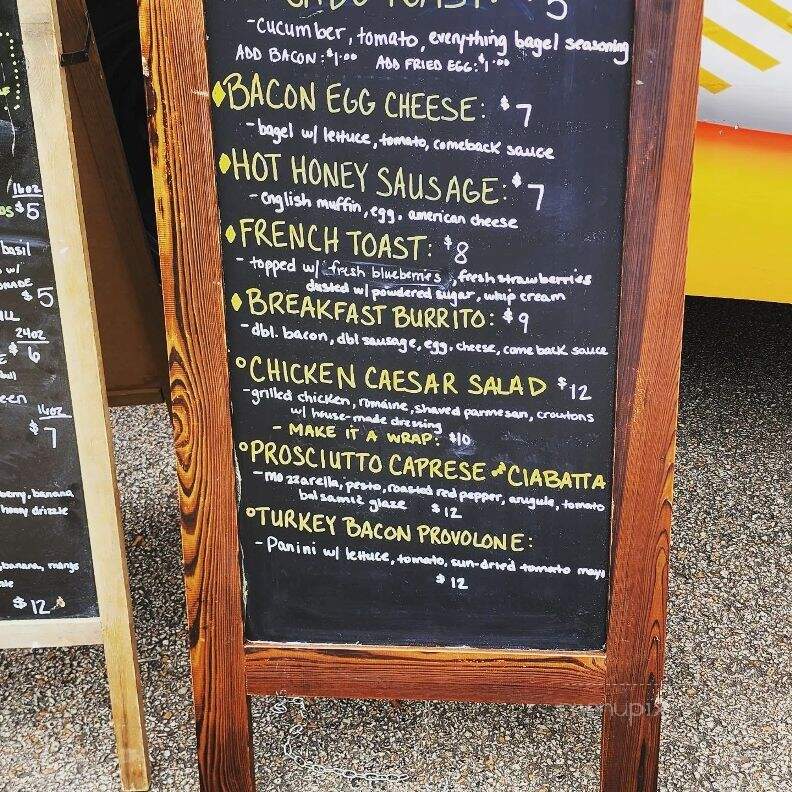 TOAST: 5
-cucumber, tomato, everything bagel seasoning
ADD BACON: $1.00 ADD FRIED EGG: $1.00
BACON EGG CHEESE: $7
-bagel w/ lettuce, tomato, comeback sauce
HOT HONEY SAUSAGE: $7
-english muffin, egg, american cheese
FRENCH TOAST: $8
- topped w/ fresh blueberries, fresh strawberries
dusted w/ powdered sugar, whip cream
BREAKFAST BURRITO: $9
-dbl. bacon, dbl sausage, egg, cheese, come back sauce
CHICKEN CAESAR SALAD $12
-grilled chicken, romaine, shaved parmesan, croutons
w/ house-made dressing
- MAKE IT A WRAP: $10
PROSCIUTTO CAPRESE CIABATTA
-mozzarella, pesto, roasted red pepper, arugula, tomato
balsamic glaze $12
TURKEY BACON PROVOLONE:
-Panini w/ lettuce, tomato, sun-dried tomato mayo
$12
16oz
$5
basil
w/
$5
24oz
$6
16oz
$7
banana
honey drizzle
banana, mango
$12